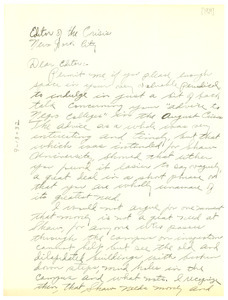 Editor of the Crisis
New York City
Dear Editor:
Permit me if you please enough
space in your very valuable periodical
to indulge in just a bit of back
talk concerning your "Advice to
Negro Colleges" in the August Crisis.
The advice as a whole was very
interesting and timely but that
which was intended for Shaw
University, showed that either
you find it easier to say
a great deal in a short phrase, or
that you are wholly unaware of
its greatest need.
I would not argue for one moment
that money is not a great need at
Shaw, for anyone who passes
through the campus
cannot help but see the old and
dilapidated buildings with broken
down steps, mud holes on the
campus and what nots. I recognize
then, that Shaw needs money and